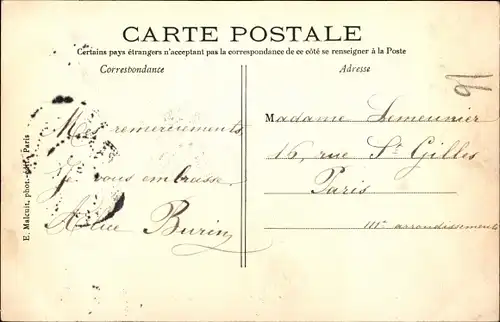 CARTE POSTALE
Certains pays étrangers n'acceptant pas la correspondance de ce côté se renseigner à la Poste
Correspondance
Mes remerciements
Je vous embrasse
Alice Burin
Adresse
91
Madame Lemeunier
16, rue St Gilles
Paris
IIIe arrondissement
E. Malcuit, phot.-édit. Paris